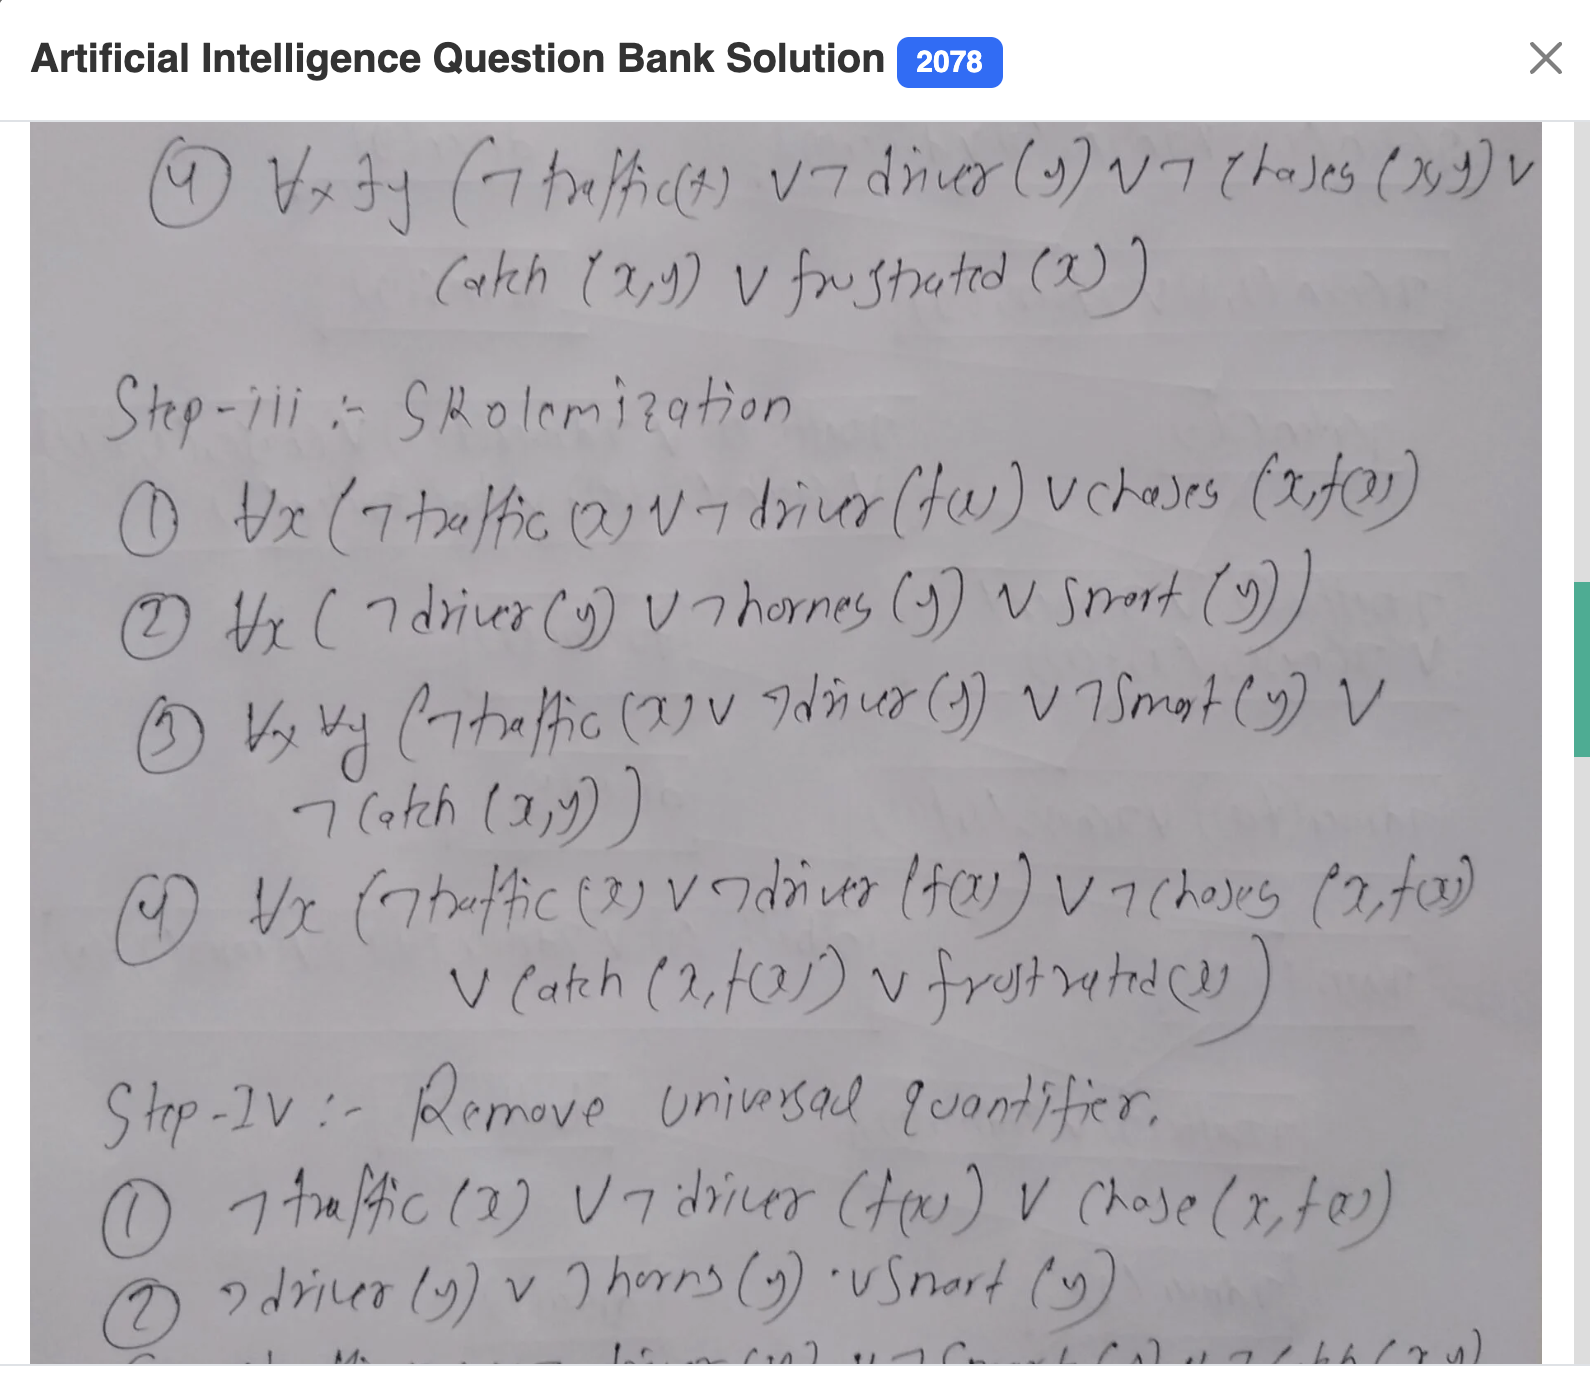 Artificial Intelligence Question Bank Solution 2078
④ ∀x ∃y (¬traffic(x) ∨ ¬driver(y) ∨ ¬chases(x,y) ∨
Catch (x,y) ∨ frustrated (x))
Step-iii :- SKolemization
① ∀x (¬traffic(x) ∨ ¬driver(f(x)) ∨ chases (x,f(x))
② ∀x (¬driver(y) ∨ ¬hornes(y) ∨ Smart (y))
③ ∀x ∀y (¬traffic(x) ∨ ¬driver(y) ∨ ¬Smart(y) ∨
¬Catch (x,y))
④ ∀x (¬traffic(x) ∨ ¬driver (f(x)) ∨ ¬Chases (x,f(x))
∨ Catch (x,f(x)) ∨ frustrated(x))
Step-IV :- Remove Universal quantifier.
① ¬traffic(x) ∨ ¬driver (f(x)) ∨ Chase(x,f(x))
② ¬driver(y) ∨ ¬horns(y) ∨ Smart (y)